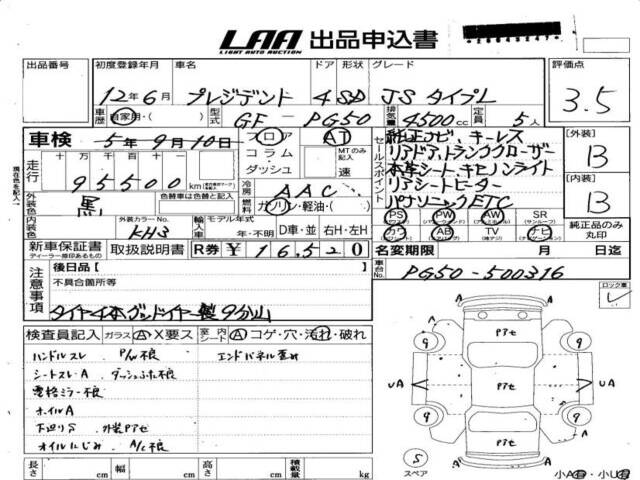 LAA 出品申込書
LIGHT AUTO AUCTION
出品番号 初度登録年月 車名 ドア 形状 グレード 評価点
12年6月 プレジデント 4 SD JS タイプL 3.5
車歴 自家用・( ) 型式 GF - PG50 排気量 4500cc 定員 5人
車検 5年9月10日 フロア AT
コラム・ダッシュ MTのみ記入 速
走行 十万千百十
95500 km
現在色を記入
外装色 黒 色替車は色替と記入
冷房 AAC
燃料 ガソリン・軽油・( )
内装色 外装カラーNo. KH3
輸入車 モデル年式 年・不明 D車・並 右H・左H
セールスポイント
純正ナビ・キーレス
リアドア、トランククローザー
本革シート・キセノンライト
リアシートヒーター
パナソニックETC
[外装] B
[内装] B
PS PW AW SR
(パワステ) (パワーウィンドウ) (アルミホイール) (サンルーフ)
カワ AB TV ナビ
純正品のみ丸印
新車保証書 取扱説明書 R券 ¥16,520
ディーラー捺印あるもの
名変期限 月 日迄
注意事項 後日品[ ]
不具合箇所等
タイヤ4本グッドイヤー製9分山
車台No. PG50-500316
ロック車 レ
検査員記入 ガラス A・X要ス 室内 シート A コゲ・穴・汚れ・破れ
ハンドルスレ P/W不良 エンドパネル歪み
シートスレ・A ダッシュふた不良
電格ミラー不良
ホイルA
下廻りS 外装Pアセ
オイルにじみ A/C不良
A A
Pアセ
9 9
UA Pアセ UA
9 9
Pアセ
A A
S
スペア
小A・小U
長さ cm 幅 cm 高さ cm 積載量 kg